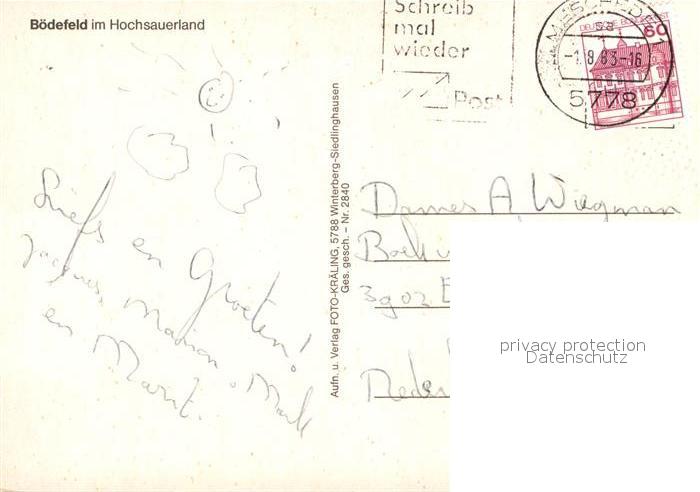 Bödefeld im Hochsauerland
Schreib
mal
wieder
Post
MESCHEDE
sa
-1.8.83-16
5778
DEUTSCHE BUNDESPOST
60
Liefs en Groeten!
Jacques, Marian, Mark
en Marit.
Aufn. u. Verlag FOTO-KRÄLING, 5788 Winterberg-Siedlinghausen
Ges. gesch. – Nr. 2840
Dames A, Wiegman
3902
privacy protection
Datenschutz